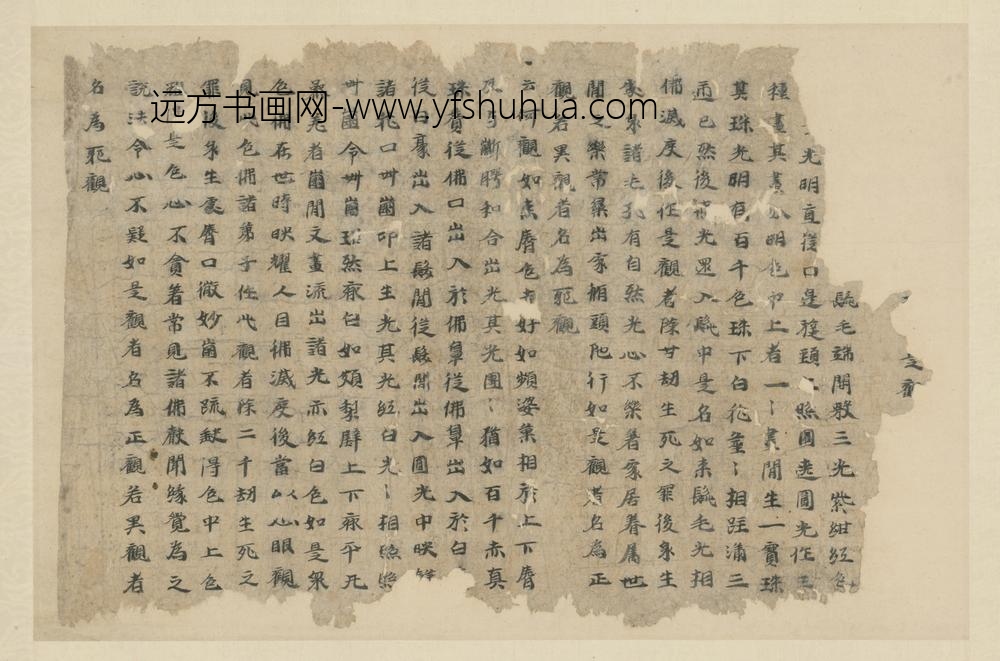 髭毛端開敷三光紫紺紅色
光明直從口邊旋頸上照圓遶圓光作三
種畫其畫分明色中上者一一畫間生一寶珠
其珠光明有百千色珠下白花臺臺相跓滿三
匝已然後彼光還入髭中是名如來髭毛光相
佛滅度後作是觀者除廿劫生死之罪後身生
處身諸毛孔有自然光心不樂著家居眷屬世
間之樂常樂出家頭陁行如是觀者名為正
觀若異觀者名為耶觀
云何觀如來脣色相好如頻婆菓相於上下脣
及與齗腭和合出光其光團團猶如百千赤真
珠貫從佛口出入於佛鼻從佛鼻出入於白
從白豪出入諸髮間從髮間出入圓光中映
諸化口卌齒印上生光其光紅白光光相照
卌齒令卌齒瑠然齊白如頗梨壁上下齊平无
參差者齒間文畫流出諸光亦紅白色如是眾
色佛在世時映耀人目佛滅度後當以心眼觀
見此色佛諸弟子作此觀者除二千劫生死之
罪後身生處脣口微妙齒不疏缺得色中上色
是色心不貪著常見諸佛聲聞緣覺為之
說法令心不疑如是觀者名為正觀若異觀者
名為耶觀
远方书画网-www.yfshuhua.com